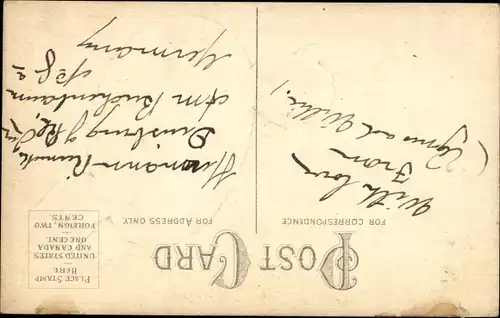 POST CARD
FOR CORRESPONDENCE
FOR ADDRESS ONLY.
PLACE STAMP
HERE
UNITED STATES
AND CANADA
ONE CENT.
FOREIGN, TWO
CENTS.
With love
From
Hermann
Duisburg
Am Buchenbaum
Germany